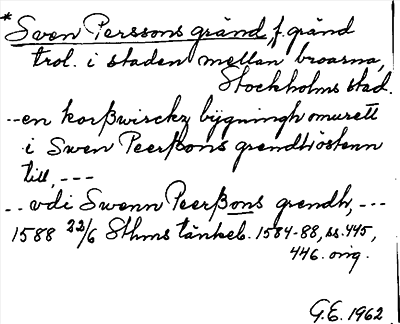 * Sven Perssons gränd, f. gränd
trol. i staden mellan broarna,
Stockholms stad.
--en korßwirckz bÿgningh omurett
i Swen Peerßons grendh östenn
till, ---
-- vdi Swenn Peerßons grendh, ---
1588 22/6 Sthms tänkeb. 1584-88, ss. 445,
446. orig.
G.E. 1962